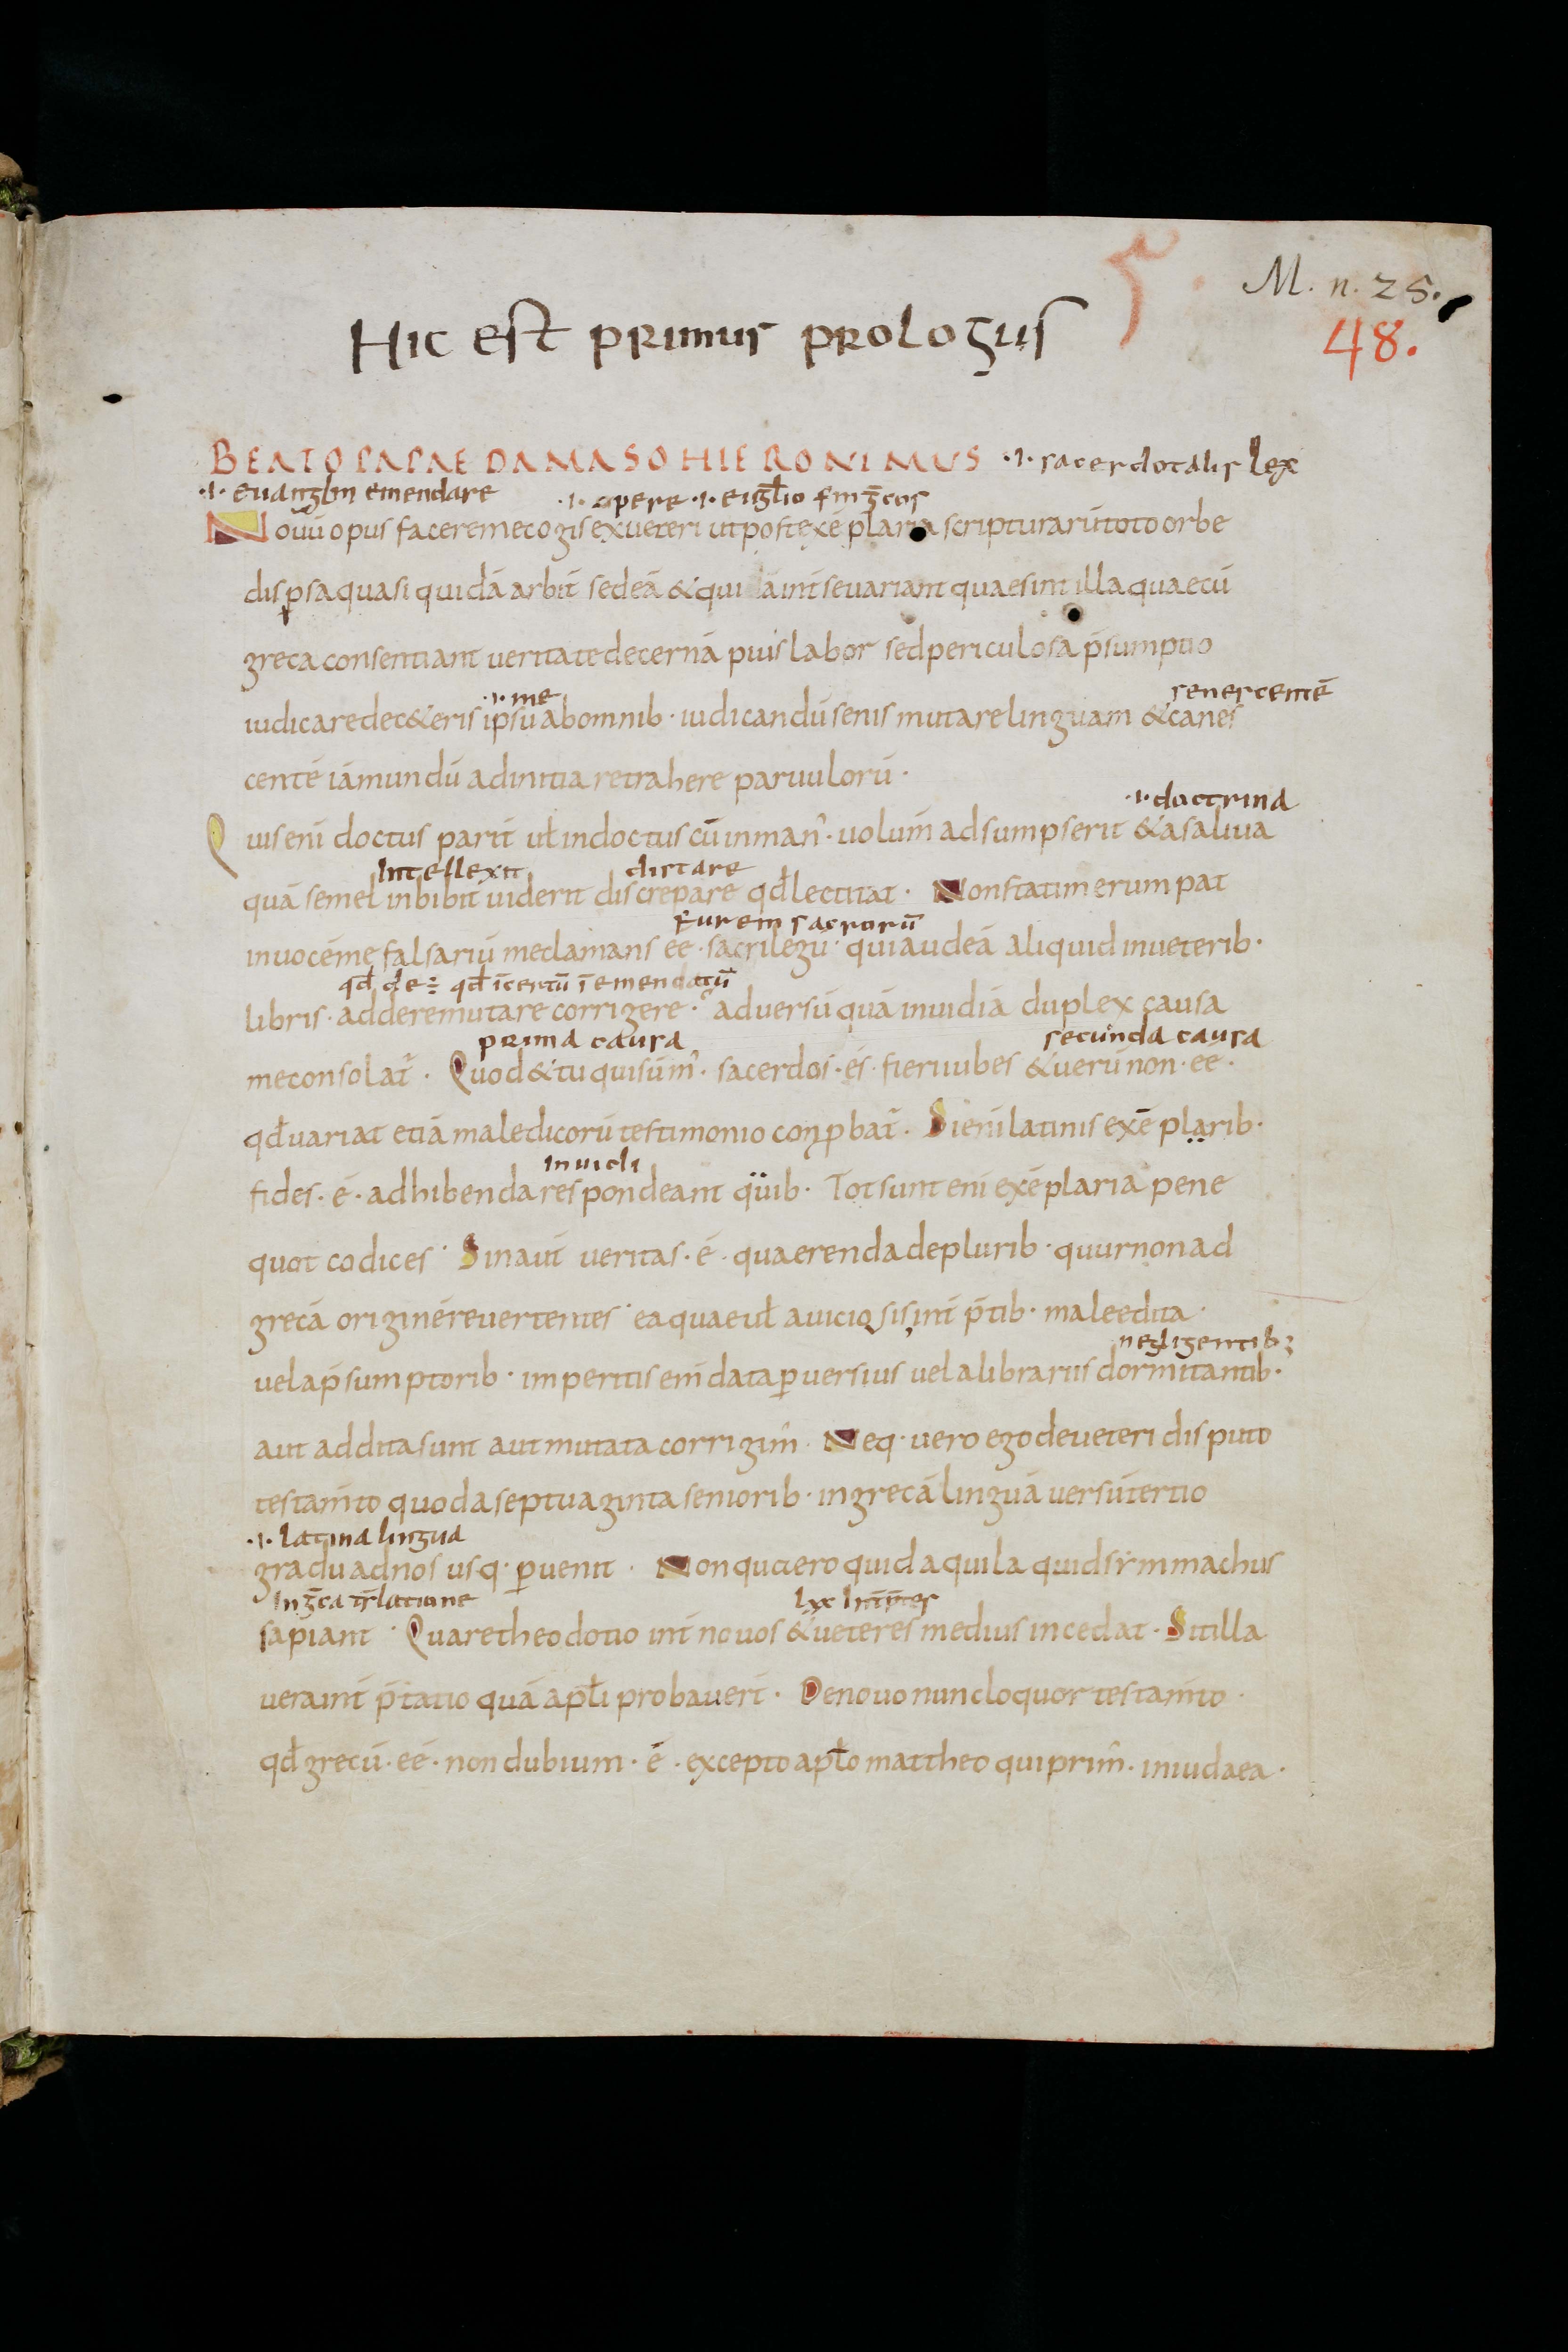 M. n. 25.
48.
Hic est primus prologus
BEATO PAPAE DAMASO HIERONIMUS ·i· sacerdotalis lex
·i· euanglm emendare ·i· opere ·i· eugl̄io
Nouū opus facere me cogis ex ueteri ut post exēplaria scripturarū toto orbe
disꝑsa quasi quidā arbit̄ sedeā & qui ā int̄ se uariant quae sint illa quae cū
greca consentiant ueritate decernā pius labor sed periculosa p̄sumptio
·i· me senescentē
iudicare de cet&eris ipsū ab omnib· iudicandū senis mutare linguam & canes
centē iā mundū ad initia retrahere paruulorū·
·i· doctrina
Quis enī doctus parit̄ ul̄ indoctus cū in man᷒· uolum̄ adsumpserit & a saliua
Intellexit distare
quā semel inbibit uiderit discrepare qđ lectitat· Non statim erumpat
Furem sacrorū
in uocē me falsariū me clamans eē· sacrilegū· qui audeā aliquid in ueterib·
qđ deē qđ īcertū ī emendatū
libris· addere mutare corrigere· aduersū quā inuidiā duplex causa
prima causa secunda causa
me consolat᷒· Quod & tu qui sūm᷒· sacerdos· es· fieri iubes & uerū non· eē·
qđ uariat etiā maledicorū testimonio conꝓbat᷒· Si enī latinis exēplarib·
inuidi
fides· ē· adhibenda respondeant quib· Tot sunt enī exēplaria pene
quot codices· Sin aut̄ ueritas· ē· quaerenda de plurib· quur non ad
grecā originē reuertentes· ea quae ul̄ a uiciosis int̄p̄tib· male edita·
negligentib;
uel a p̄sumptorib· imperitis em̄data ꝑuersius uel a librariis dormitantib·
aut addita sunt aut mutata corrigim᷒· Neq· uero ego de ueteri disputo
testam̄to quod a septuaginta seniorib· in grecā linguā uersū tertio
·i· latina lingua
gradu ad nos usq· ꝑuenit· Non quaero quid aquila quid symmachus
In ḡca tr̄latione lxx Int̄p̄tes
sapiant· Quare theodotio int̄ nouos & ueteres medius incedat· Sit illa
uera int̄p̄tatio quā apl̄i probauer̄· De nouo nunc loquor testam̄to·
qđ grecū· eē· non dubium· ē· excepto apl̄o mattheo qui prim᷒· in iudaea·